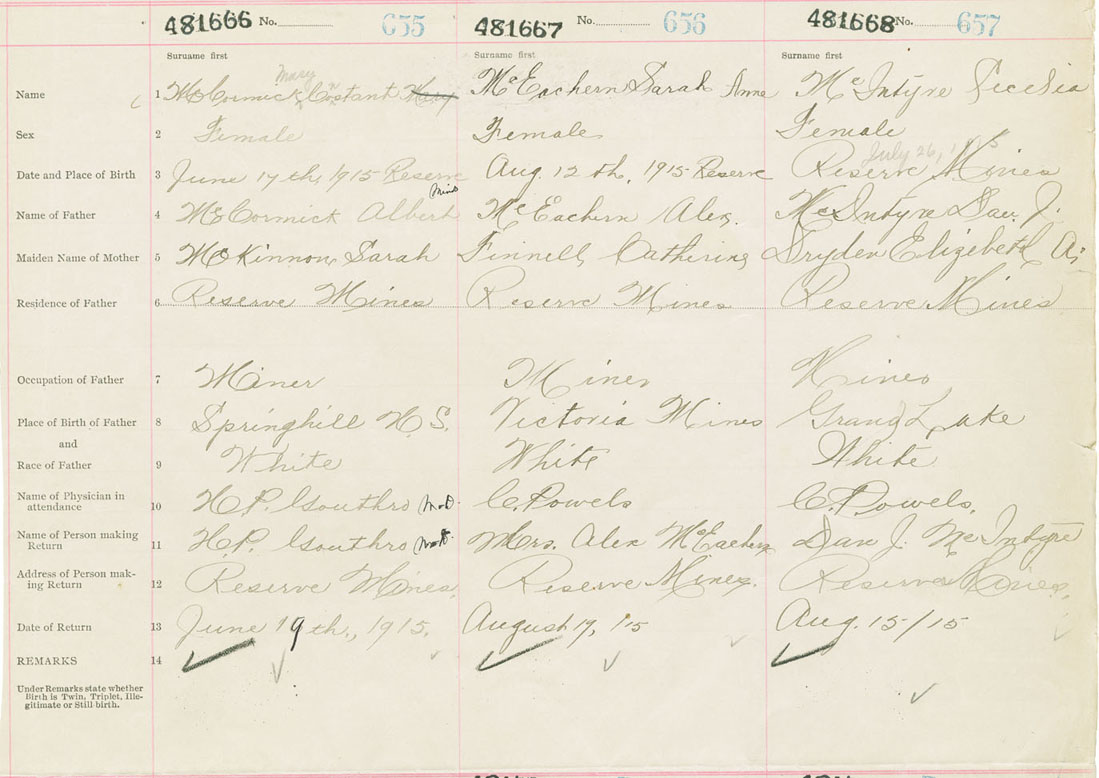 481666 No. 655 481667 No. 656 481668 No. 657
Surname first Surname first Surname first
Mary
Name 1 McCormick, Constant Mary McEachern Sarah Anne McIntyre Cecilia
Sex 2 Female Female Female
July 26, 1915
Date and Place of Birth 3 June 17th, 1915 Reserve Mines Aug 12th, 1915 Reserve Reserve Mines
Name of Father 4 McCormick Albert McEachern Alex. McIntyre Dan J.
Maiden Name of Mother 5 McKinnon, Sarah Finnell, Catherine Dryden Elizabeth A.
Residence of Father 6 Reserve Mines Reserve Mines Reserve Mines
Occupation of Father 7 Miner Miner Miner
Place of Birth of Father 8 Springhill N.S. Victoria Mines Grand Lake
and
Race of Father 9 White White White
Name of Physician in
attendance 10 H.P. Gouthro M.D. C. Powels C. Powels.
Name of Person making
Return 11 H.P. Gouthro M.D. Mrs. Alex McEachern Dan J. McIntyre
Address of Person mak-
ing Return 12 Reserve Mines. Reserve Mines. Reserve Mines.
Date of Return 13 June 19th., 1915. August 17, '15 Aug. 15/15
REMARKS 14
Under Remarks state whether
Birth is Twin, Triplet, Ille-
gitimate or Still-birth.